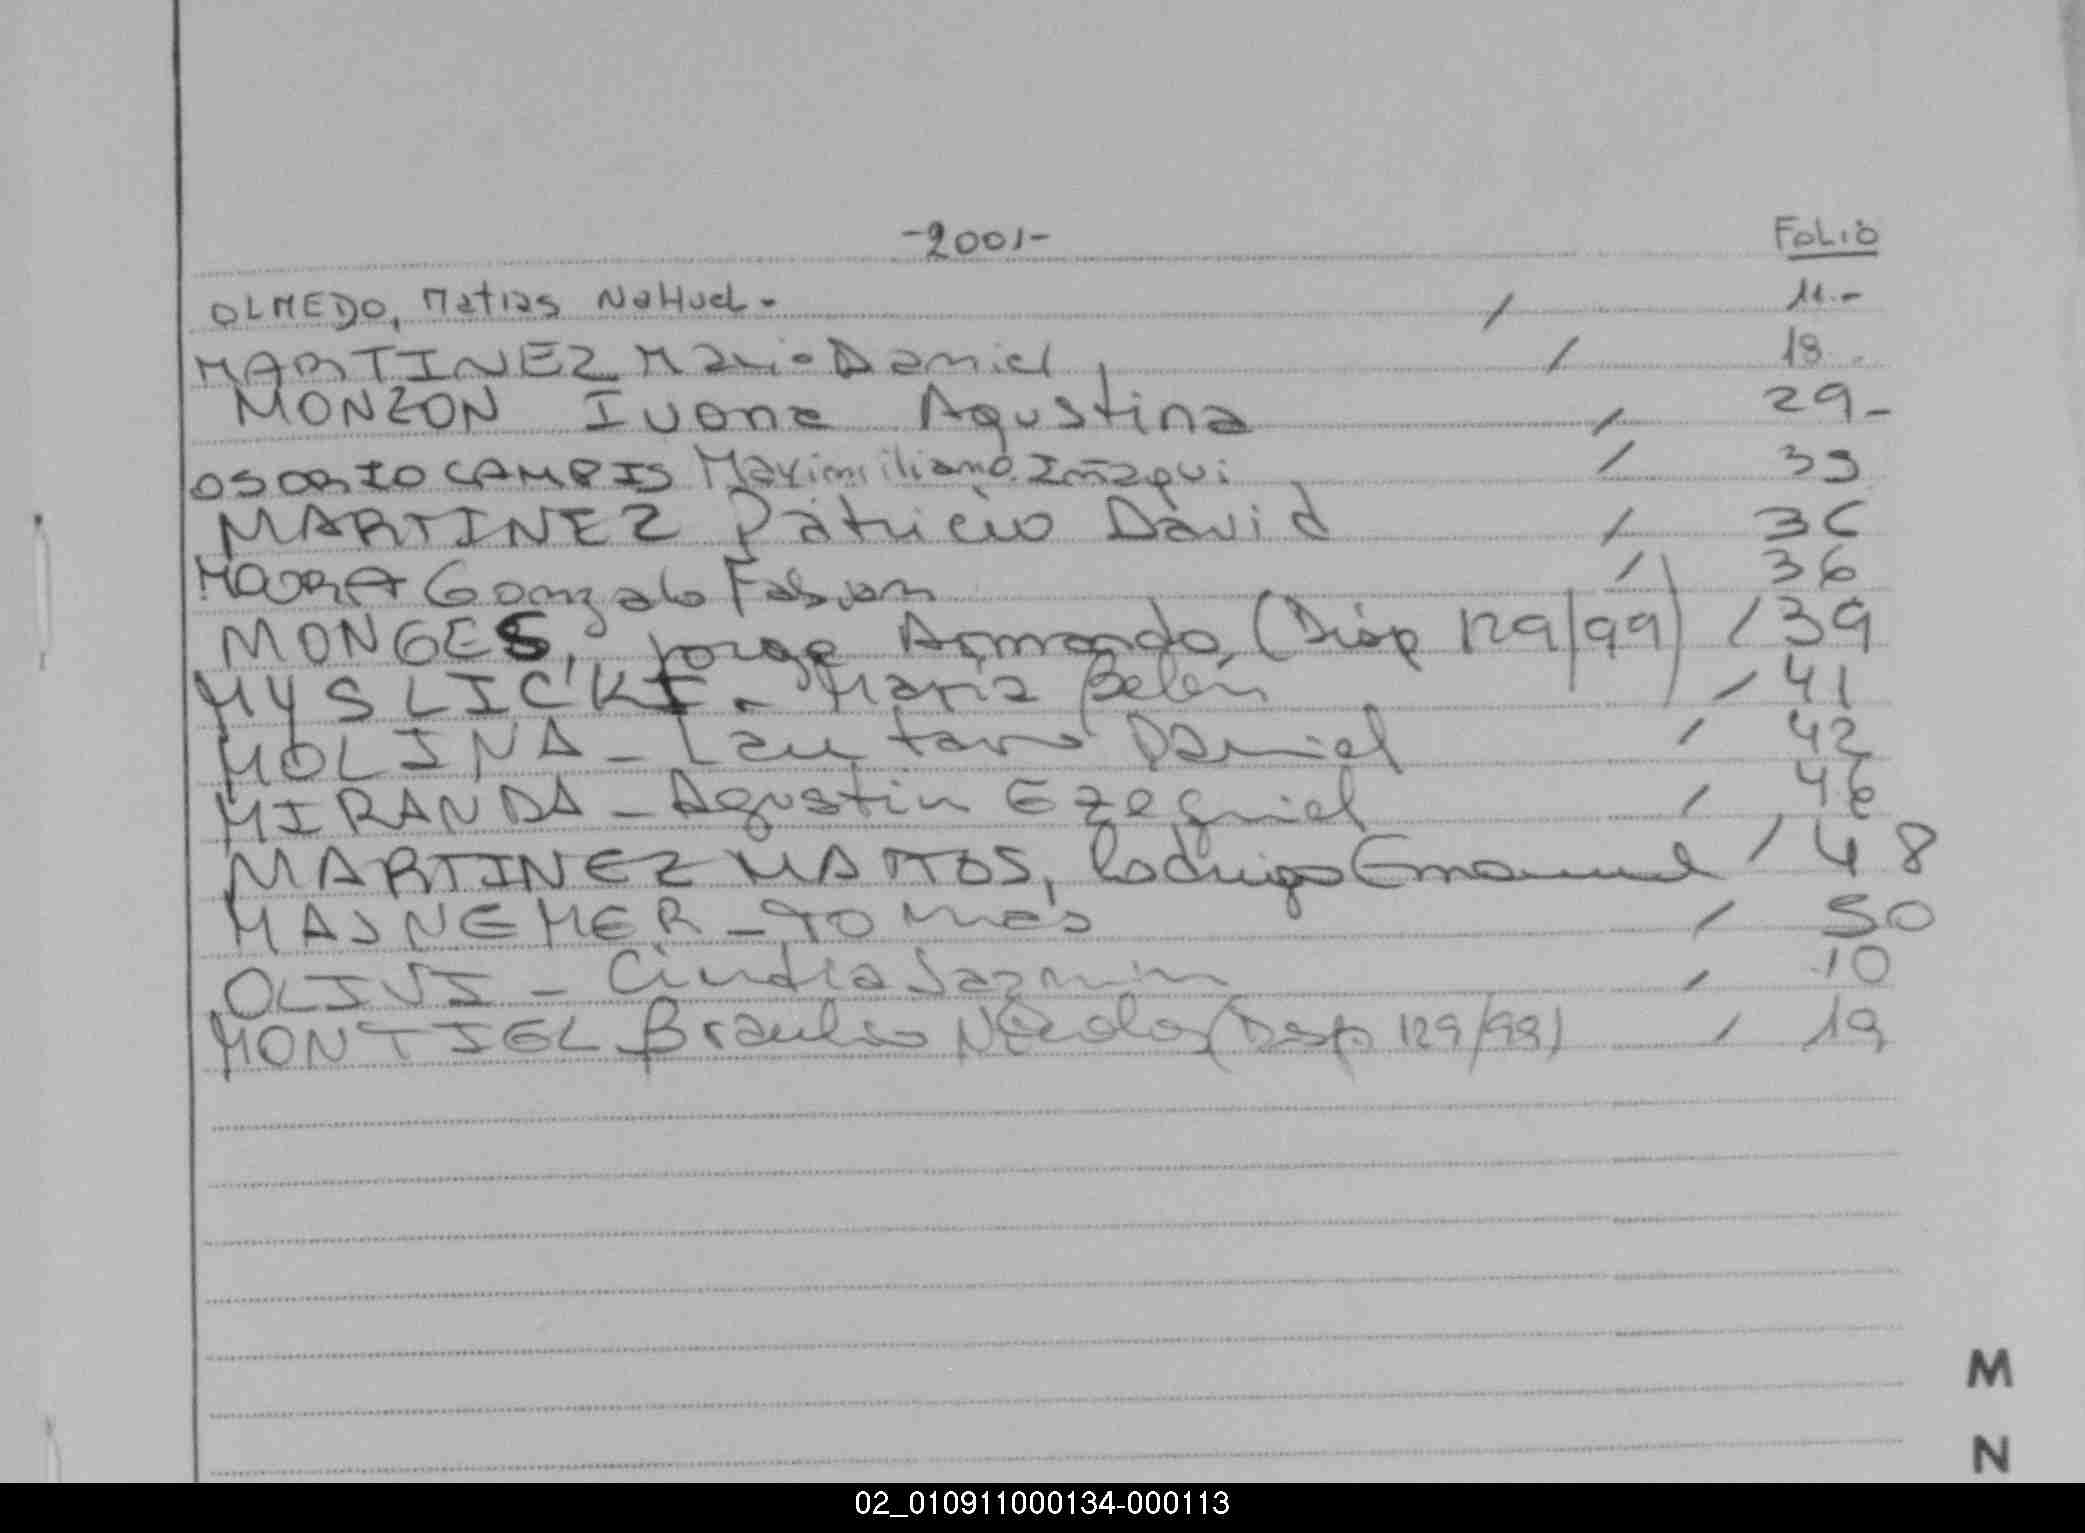 -2001- FOLIO
OLMEDO, Matias Nahuel - / 11.-
MARTINEZ Mario Daniel / 18
MONZON Ivone Agustina / 29-
OSORIO CAMPIS Maximiliano Iñaqui / 33
MARTINEZ Patricio David / 36
Gonzalo Fabian / 36
MONGES, Jorge Armando, (Disp 129/99) / 39
MYSLICKI - Maria Belén / 41
MOLINA - Lautaro Daniel / 42
MIRANDA - Agustin Ezequiel / 46
MARTINEZ MATTOS, Rodrigo Emanuel / 48
MASNEMER - Tomás / 50
OLIVI - Cintia Jazmin / 10
MONTIEL Braulio Nicolas (Disp 129/99) / 19
M
N
02_010911000134-000113